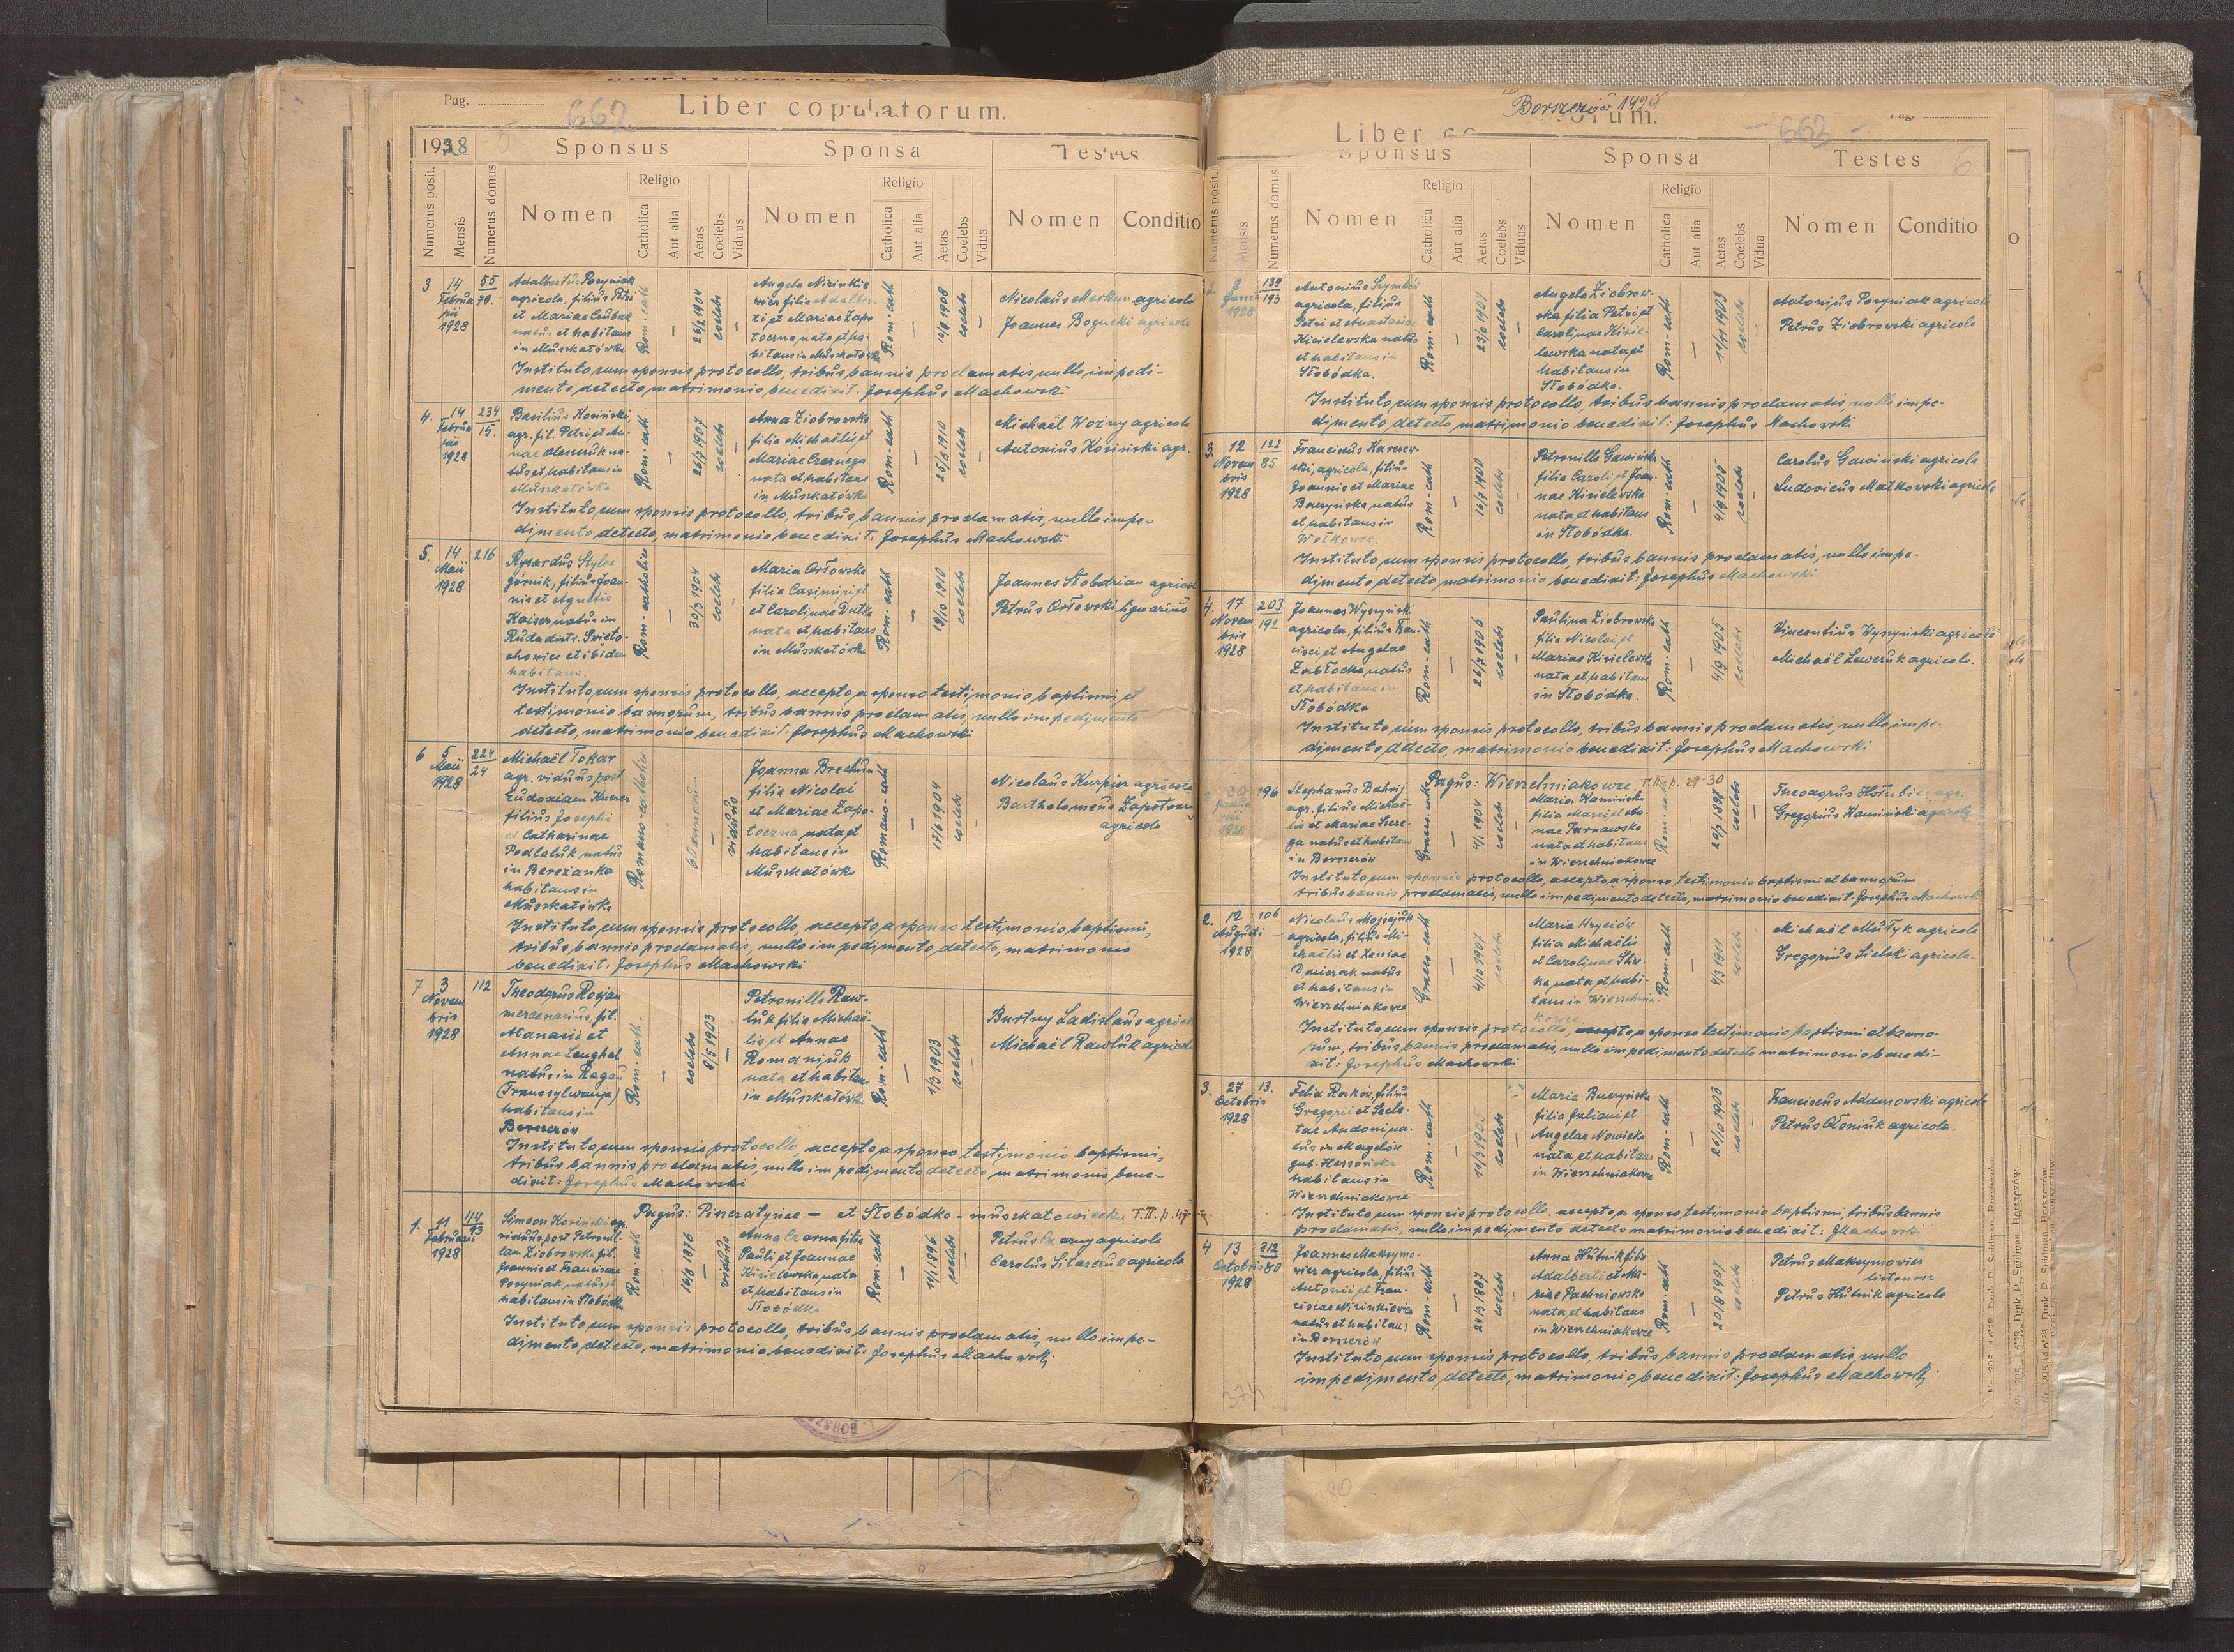 Pag.
662
Liber copulatorum.
1928
5
Sponsus
Sponsa
Testes
Numerus posit.
Mensis
Numerus domus
Nomen
Religio
Catholica
Aut alia
Aetas
Coelebs
Viduus
Nomen
Religio
Catholica
Aut alia
Aetas
Coelebs
Vidua
Nomen
Conditio
3
14
Februa
rii
1928
55
70.
Adalbertus Posyniak
agricola, filius Petri
et Mariae Czubak
natus et habitans
in Muszkatówka
Rom-cath
—
26/2 1904
coelebs
—
Angela Nizinkie
wicz filia Adalber-
ti et Mariae Zapo
toczna nata et ha-
bitans in Muszkatówka
Rom-cath
—
19/8 1908
coelebs
—
Nicolaus Merkun agricola
Joannes Bogucki agricola
Instituto cum sponsis protocollo, tribus bannis proclamatis, nullo impedi-
mento detecto, matrimonio benedixit: Josephus Machowski
4.
14
Februa
rii
1928
234
15.
Basilius Kosiński
agr. fil. Petri et An-
nae Oleszczuk na-
tus et habitans in
Muszkatówka
Rom-cath
—
26/7 1907
coelebs
—
Anna Ziobrowska
filia Michaëlis et
Mariae Czornega
nata et habitans
in Muszkatówka
Rom-cath
—
25/6 1910
coelebs
—
Michaël Woźny agricola
Antonius Kosiński agr.
Instituto cum sponsis protocollo, tribus bannis proclamatis, nullo impe-
dimento detecto, matrimonio benedixit: Josephus Machowski
5.
14
Maii
1928
216
Rysardus Stylec
górnik, filius Joan-
nis et Agnetis
Kaiser natus in
Ruda distr. Święto-
chowice et ibidem
habitans.
Rom-catholica
—
30/3 1904
coelebs
Maria Orłowska
filia Casimiri et
et Carolinae Dutka
nata et habitans
in Muszkatówka
Rom-cath
—
19/10 1910
coelebs
—
Joannes Stobdrian agricola
Petrus Orłowski lignarius
Instituto cum sponsis protocollo, accepto a sponso testimonio baptismi et
testimonio bannorum, tribus bannis proclamatis, nullo impedimento
detecto, matrimonio benedixit: Josephus Machowski
6
5
Maii
1928
224
24
Michaël Tokar
agr. viduus post
Eudoxiam Kucner
filius Josephi
et Catharinae
Podlaluk natus
in Bereżanka
habitans in
Muszkatówka
Romano-catholica
60 annorum
—
viduus
Joanna Brechun
filia Nicolai
et Mariae Zapo-
toczna nata et
habitans in
Muszkatówka
Romano-cath
17/6 1904
coelebs
Nicolaus Kurpier agricola
Bartholomeus Zapotoczn
agricola
Instituto cum sponsis protocollo, accepto a sponso testimonio baptismi,
tribus bannis proclamatis, nullo impedimento detecto, matrimonio
benedixit: Josephus Machowski
7
3
Novem
bris
1928
112
Theodorus Rosjan
mercenarius, fil.
Atanasii et
Annae Lenghel
natus in Ragau
(Transsylwanja)
habitans in
Borszczów
Rom-cath.
—
coelebs
9/5 1903
—
Petronilla Raw-
luk filia Michaë-
lis et Annae
Romanjuk
nata et habitans
in Muszkatówka
Rom-cath
—
1/3 1903
coelebs
—
Burtny Ladislaus agricola
Michaël Rawluk agricola
Instituto cum sponsis protocollo, accepto a sponso testimonio baptismi,
tribus bannis proclamatis, nullo impedimento detecto matrimonio bene-
dixit: Josephus Machowski
Pagus: Piszczatyńce — et Słobódka-muszkatowiecka T. II. p. 47-
1.
11
Februarii
1928
114
93
Simeon Kosiński agr.
viduus post Petronil-
lam Ziobrowska fil.
Joannis et Franciscae
Posyniak natus et
habitans in Słobódka
Rom-cath
16/8 1876
—
viduus
Anna Czarna filia
Pauli et Joannae
Kisielewska nata
et habitans in
Słobódka
Rom-cath
—
14/1 1896
coelebs
—
Petrus Czarny agricola
Carolus Sitarczuk agricola
Instituto cum sponsis protocollo, tribus bannis proclamatis, nullo impe-
dimento, detecto, matrimonio benedixit: Josephus Machowski
Borszczów 1929
Liber co
orum.
Pag.
663
6
Sponsus
Sponsa
Testes
Numerus posit.
Mensis
Numerus domus
Nomen
Religio
Catholica
Aut alia
Aetas
Coelebs
Viduus
Nomen
Religio
Catholica
Aut alia
Aetas
Coelebs
Vidua
Nomen
Conditio
2.
3
Junii
1928
139
193
Antonius Szymków
agricola, filius
Petri et Anastasiae
Kisielewska natus
et habitans in
Słobódka.
Rom-cath
—
23/6 1904
coelebs
—
Angela Ziobrow-
ska filia Petri et
Carolinae Kisie-
lewska nata et
habitans in
Słobódka.
Rom-cath
—
11/11 1903
coelebs
—
Antonius Posyniak agricola
Petrus Ziobrowski agricola
Instituto cum sponsis protocollo, tribus bannis proclamatis, nullo impe-
dimento detecto, matrimonio benedixit: Josephus Machowski
3.
12
Novem
bris
1928
122
85
Franciscus Karczew-
ski, agricola, filius
Joannis et Mariae
Buczyńska natus
et habitans in
Wołkowce.
Rom-cath
—
16/7 1900
coelebs
Petronilla Gawińska
filia Caroli et Joan-
nae Kisielewska
nata et habitans
in Słobódka.
Rom-cath
—
4/9 1905
coelebs
—
Carolus Gawiński agricola
Ludovicus Małkowski agricola
Instituto cum sponsis protocollo, tribus bannis proclamatis, nullo impe-
dimento detecto, matrimonio benedixit: Josephus Machowski
4.
17
Novem
bris
1928
203
192
Joannes Wyszyński
agricola, filius Fran-
cisci et Angelae
Zabłocka natus
et habitans in
Słobódka
Rom-cath
—
26/7 1906
coelebs
—
Paulina Ziobrowska
filia Nicolai et
Mariae Kisielewska
nata et habitans
in Słobódka.
Rom-cath
—
4/9 1905
coelebs
—
Vincentius Wyszyński agricola
Michaël Lewczuk agricola.
Instituto cum sponsis protocollo, tribus bannis proclamatis, nullo impe-
dimento detecto, matrimonio benedixit: Josephus Machowski
Pagus: Wierzchniakowce. T. II. p. 29-30
30
Janua
rii
1928
196
Stephanus Bahrij
agr. filius Michaë-
lis et Mariae Szere-
ga natus et habitans
in Borszczów
Graeco-cath
—
4/1 1904
coelebs
—
Maria Kamińska
filia Marci et An-
nae Tarnawska
nata et habitans
in Wierzchniakowce
Rom-cath
—
20/7 1897
coelebs
—
Theodorus Hołubicz agr.
Gregorius Kamiński agricola
Instituto cum sponsis protocollo, accepto a sponso testimonio baptismi et bannorum
tribus bannis proclamatis, nullo impedimento detecto, matrimonio benedixit: Josephus Machowski
2.
12
Augusti
1928
106
—
Nicolaus Mojsejuk
agricola, filius Mi-
chaëlis et Xeniae
Danczak natus
et habitans in
Wierzchniakowce
Graeco-cath
—
4/10 1907
coelebs
Maria Hryciów
filia Michaëlis
et Carolinae Śliw-
ka nata et habi-
tans in Wierzchnia-
kowce
Rom-cath
—
4/3 1911
coelebs
Michaël Mułyk agricola
Gregorius Sielski agricola.
Instituto cum sponsis protocollo, accepto a sponso testimonio baptismi et banno-
rum, tribus bannis proclamatis, nullo impedimento detecto matrimonio benedi-
xit: Josephus Machowski
3.
27
Octobris
1928
13.
Felix Raków, filius
Gregorii et Thecla-
tae Andoni na-
tus in Magelów
gub. Hersońska
habitans in
Wierzchniakowce
Rom-cath
—
11/3 1905
coelebs
—
Maria Buczyńska
filia Juliani et
Angelae Nowicka
nata et habitans
in Wierzchniakowce
Rom-cath
—
20/10 1903
coelebs
—
Franciscus Adamowski agricola
Petrus Ołeniuk agricola.
Instituto cum sponsis protocollo, accepto a sponso testimonio baptismi, tribus bannis
proclamatis, nullo impedimento detecto matrimonio benedixit: JMachowski
4
13
Octobris
1928
312
80
Joannes Maksymo-
wicz agricola, filius
Antonii et Fran-
ciscae Nizinkiewicz
natus et habitans
in Borszczów
Rom-cath
—
24/3 1887
coelebs
—
Anna Hutnik filia
Adalberti et Ma-
riae Pachniowska
nata et habitans
in Wierzchniakowce
Rom-cath
—
20/8 1907
coelebs
—
Petrus Maksymowicz
listonosz
Petrus Hutnik agricola
Instituto cum sponsis protocollo, tribus bannis proclamatis, nullo
impedimento detecto, matrimonio benedixit: Josephus Machowski